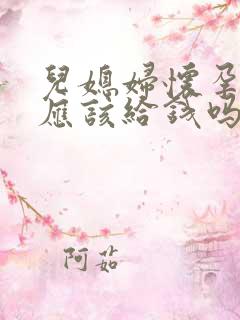 兒媳婦懷孕
應該給錢嗎
阿茹